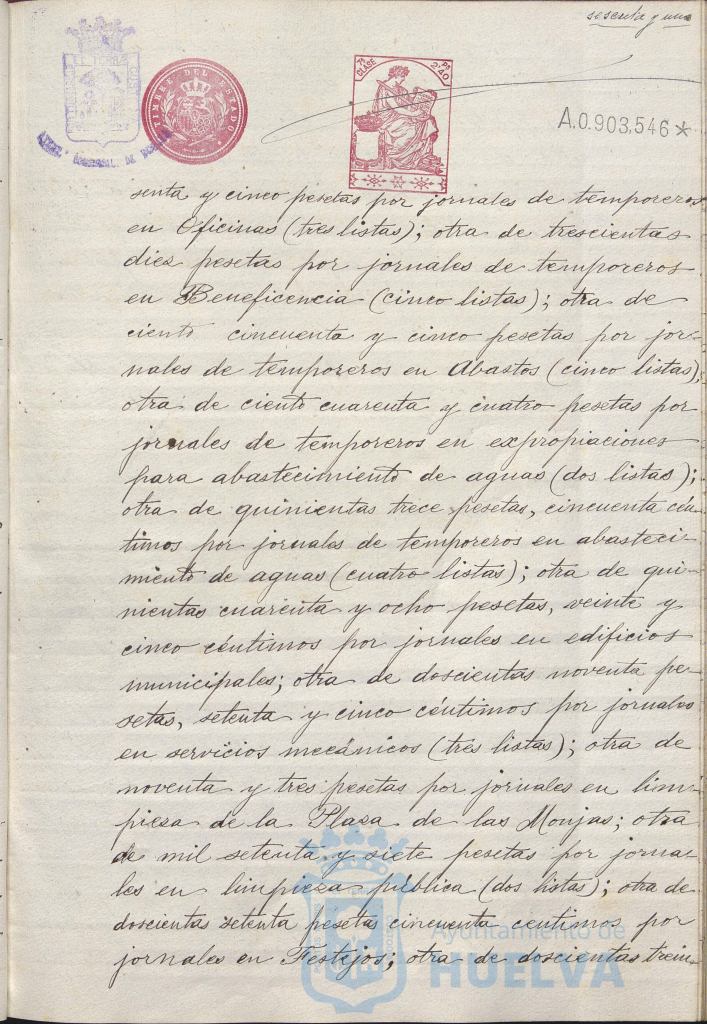 sesenta y uno
TIMBRE DEL ESTADO
7ª CLASE
Ps 2'40
A.0.903,546*
senta y cinco pesetas por jornales de temporeros
en Oficinas (tres listas); otra de trescientas
diez pesetas por jornales de temporeros
en Beneficencia (cinco listas); otra de
ciento cincuenta y cinco pesetas por jor-
nales de temporeros en Abastos (cinco listas);
otra de ciento cuarenta y cuatro pesetas por
jornales de temporeros en expropiaciones
para abastecimiento de aguas (dos listas);
otra de quinientas trece pesetas, cincuenta cén-
timos por jornales de temporeros en abasteci-
miento de aguas (cuatro listas); otra de qui-
nientas cuarenta y ocho pesetas, veinte y
cinco céntimos por jornales en edificios
municipales; otra de doscientas noventa pe-
setas, setenta y cinco céntimos por jornales
en servicios mecánicos (tres listas); otra de
noventa y tres pesetas por jornales en lim-
pieza de la Plaza de las Monjas; otra
de mil setenta y siete pesetas por jorna-
les en limpieza pública (dos listas); otra de
doscientas setenta pesetas cincuenta centimos por
jornales en Festejos; otra de doscientas trein-
Ayuntamiento de
HUELVA